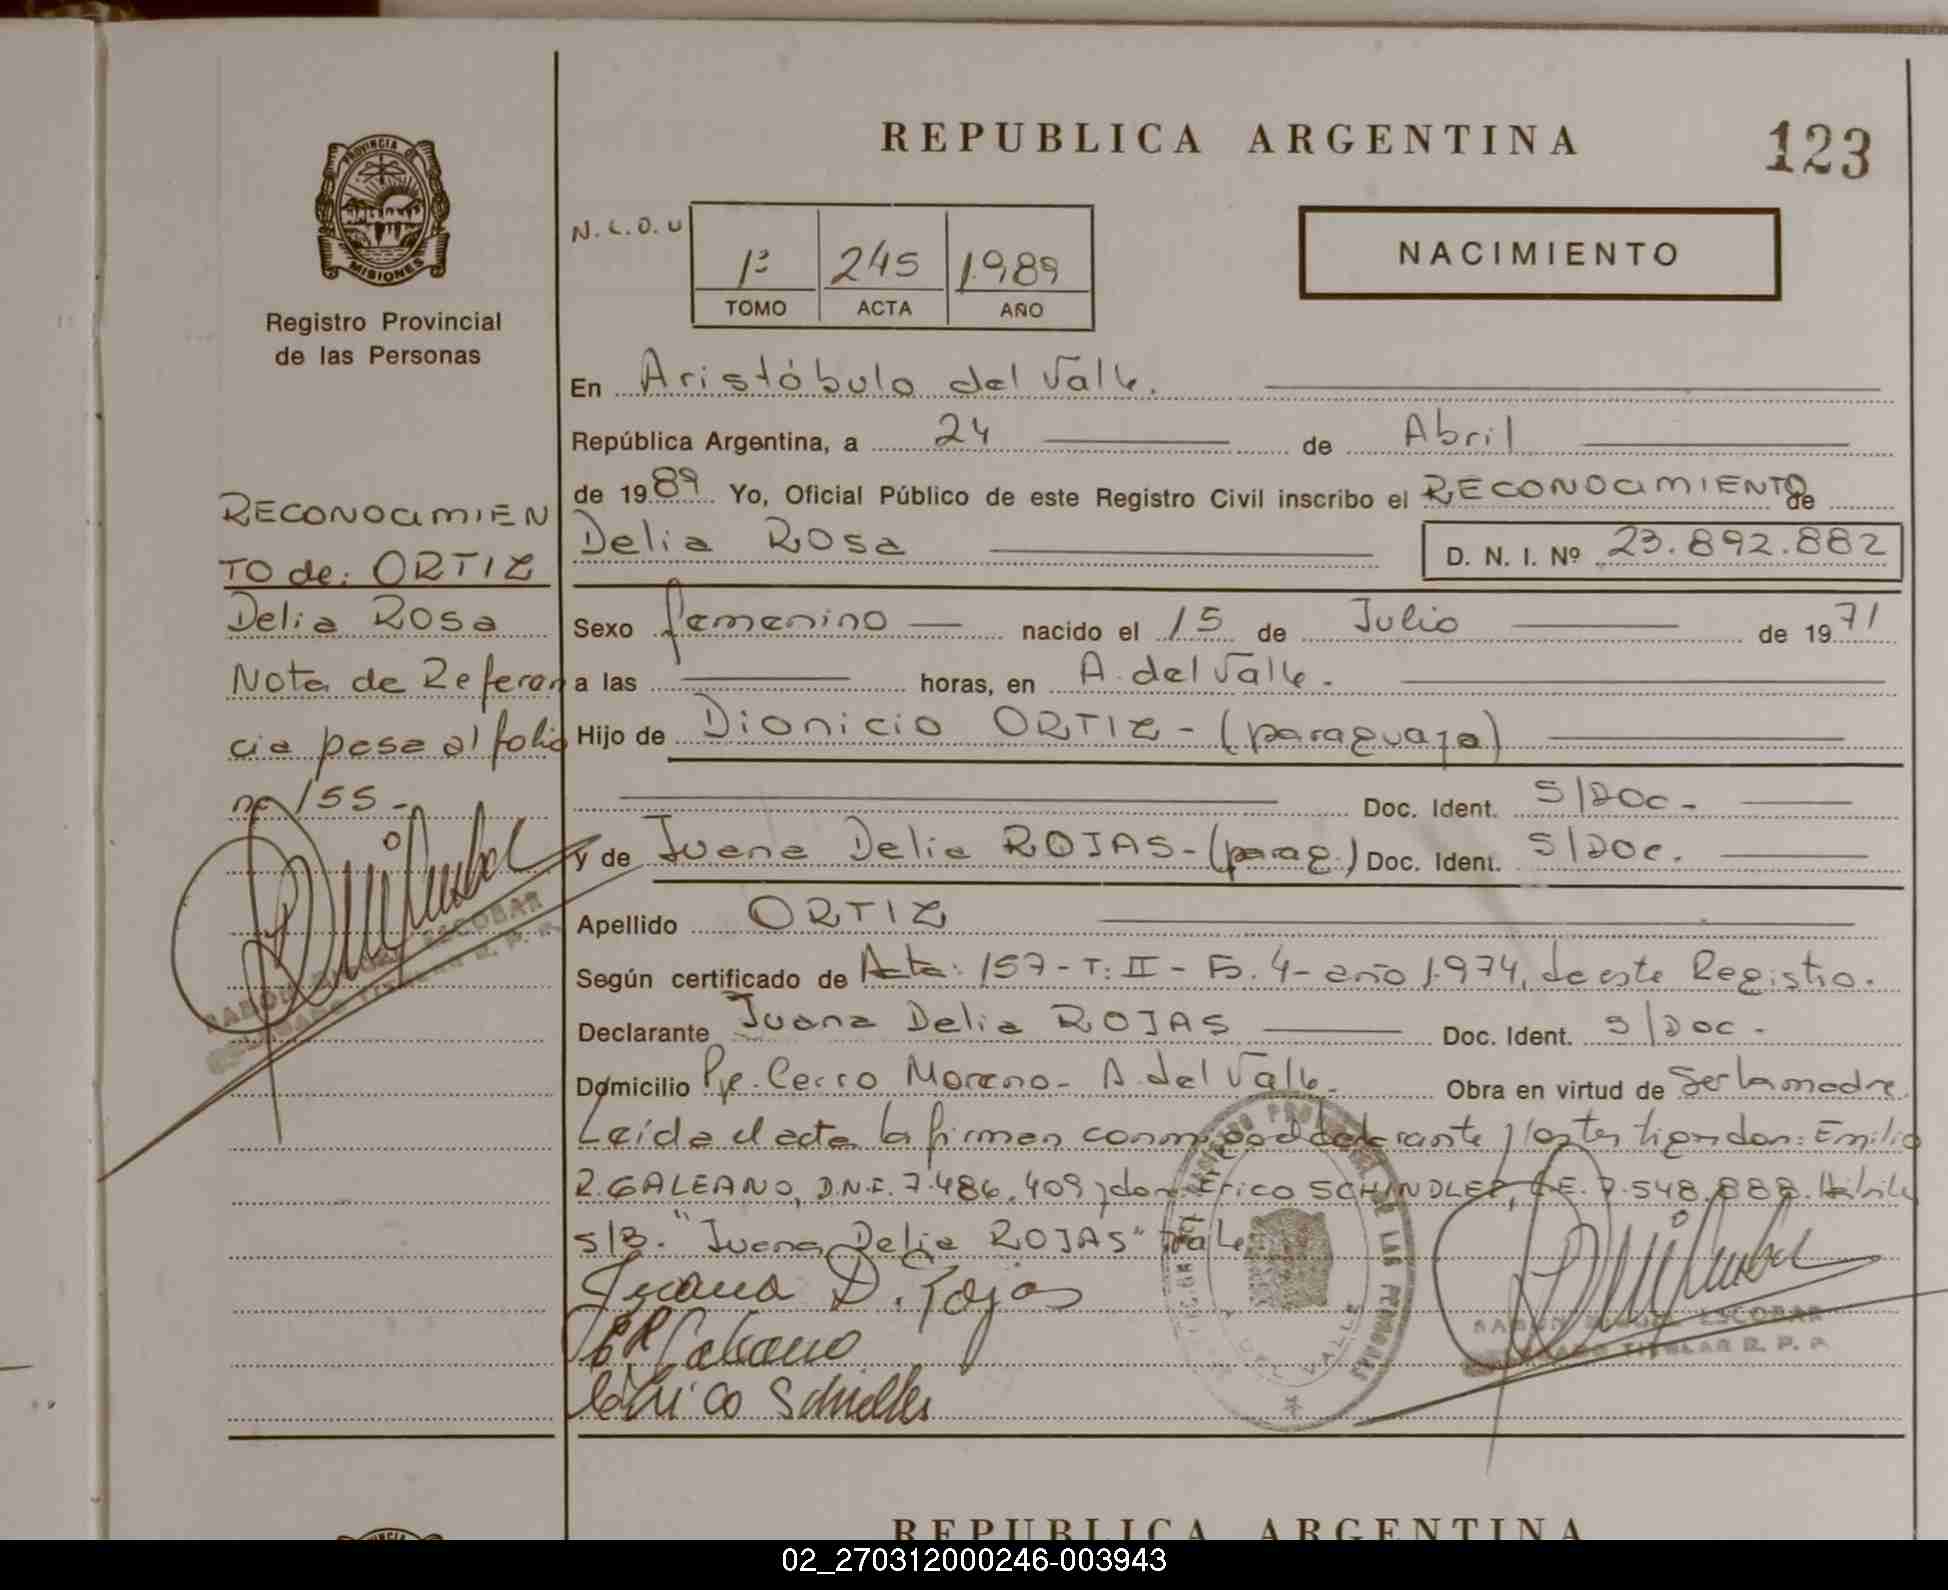 REPUBLICA ARGENTINA
123
PROVINCIA DE
MISIONES
Registro Provincial
de las Personas
N.L.O.U
1º 245 1.989
TOMO ACTA AÑO
NACIMIENTO
En Aristóbulo del Valle.
República Argentina, a 24 de Abril
de 1989 Yo, Oficial Público de este Registro Civil inscribo el RECONOCIMIENTO de
Delia Rosa D. N. I. Nº 23.892.882
Sexo femenino nacido el 15 de Julio de 1971
a las horas, en A. del Valle.
Hijo de Dionicio ORTIZ - (paraguayo)
Doc. Ident. S/Doc -
y de Juana Delia ROJAS - (parag.) Doc. Ident. S/Doc.
Apellido ORTIZ
Según certificado de Acta: 157 - T: II - Fo. 4 - año 1.974, de este Registro.
Declarante Juana Delia ROJAS Doc. Ident. S/Doc -
Domicilio Pje. Cerro Moreno - A. del Valle. Obra en virtud de Ser la madre.
Leida el acta la firman conmigo el declarante y los testigos don: Emilio
R. GALEANO, D.N.I. 7.486.409 y don Erico SCHINDLER, 7.548.888.
S/B. "Juana Delia ROJAS" Vale
Juana D. Rojas
ER Galeano
Erico Schindler
RECONOCIMIEN
TO de: ORTIZ
Delia Rosa
Nota de Referen
cia pasa al folio
nº 155 -
RAMON MIGUEL ESCOBAR
TITULAR R. P. P.
DE LAS PERSONAS
DEL VALLE
RAMON MIGUEL ESCOBAR
TITULAR R. P. P.
REPUBLICA ARGENTINA
02_270312000246-003943